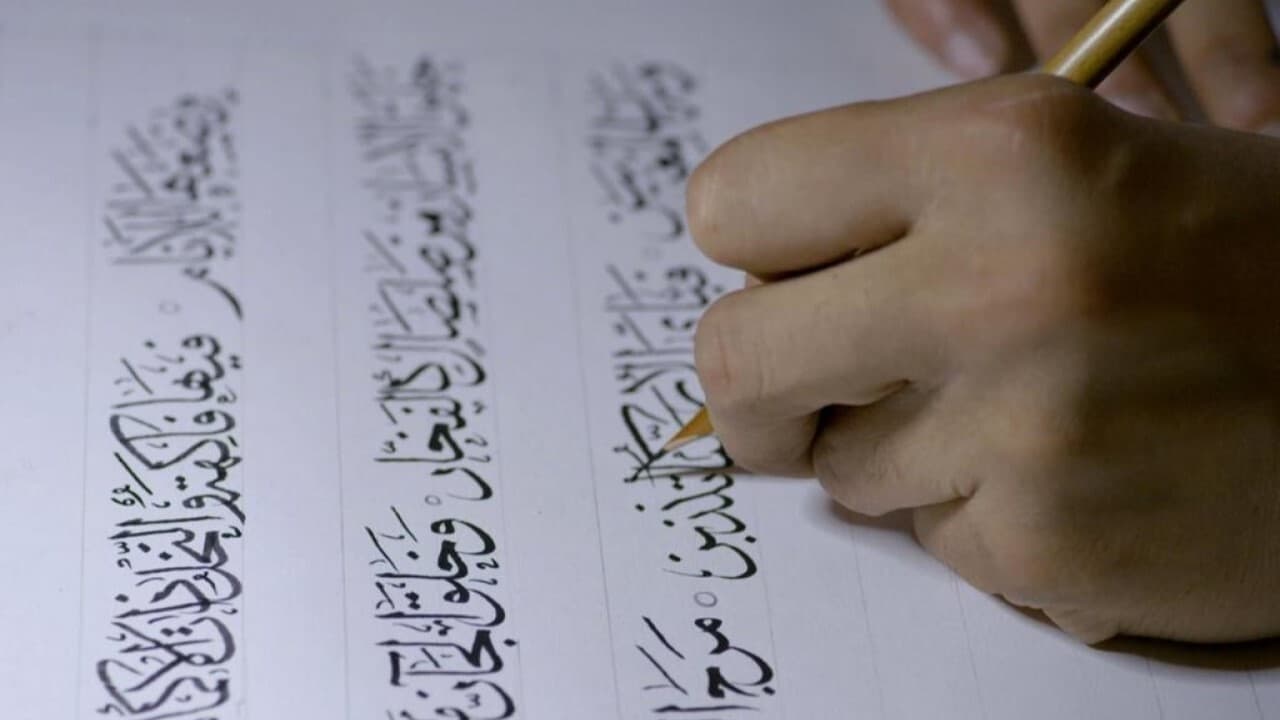 وضعها للأنام ○ فيها فاكهة والنخل ذات الأكمام
خلق الإنسان من صلصال كالفخار ○ وخلق الجان
ورب المغربين ○ فبأي آلاء ربكما تكذبان ○ مرج